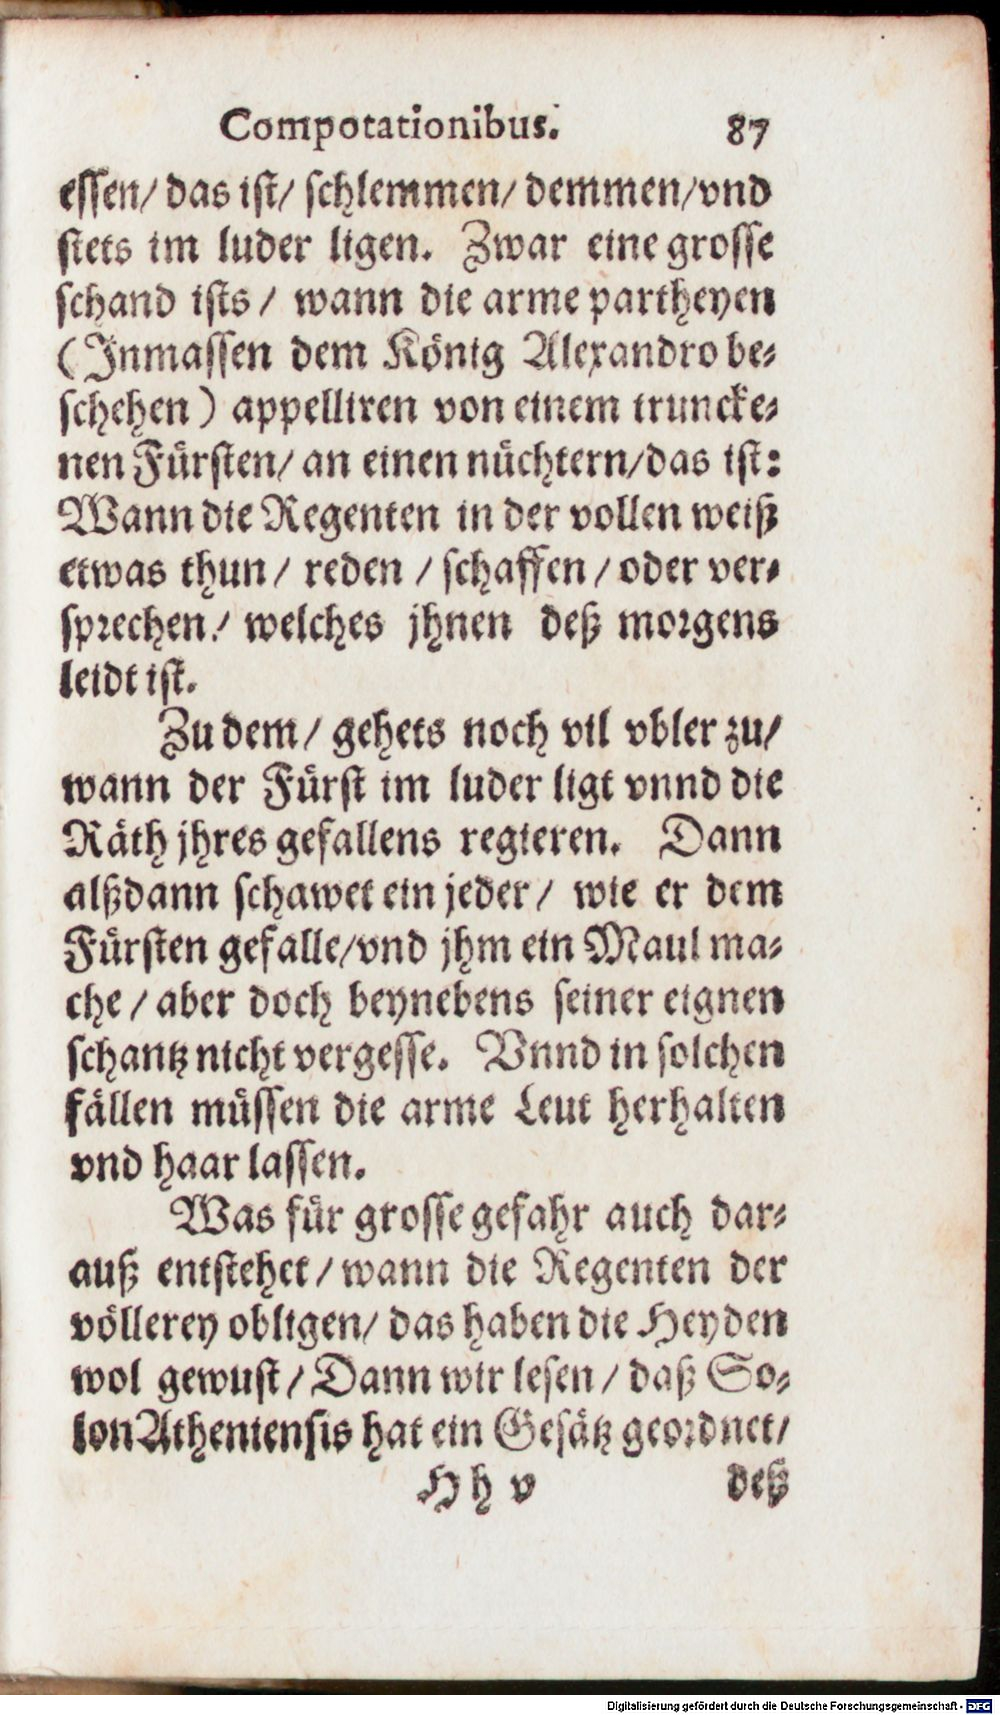 Compotationibus. 87
essen/ das ist/ schlemmen/ demmen/ vnd
stets im luder ligen. Zwar eine grosse
schand ists / wann die arme partheyen
(Inmassen dem König Alexandro be-
schehen) appelliren von einem truncke-
nen Fürsten/ an einen nüchtern/ das ist:
Wann die Regenten in der vollen weiß
etwas thun / reden / schaffen / oder ver-
sprechen / welches jhnen deß morgens
leidt ist.
Zu dem / gehets noch vil vbler zu/
wann der Fürst im luder ligt vnnd die
Räth jhres gefallens regieren. Dann
alßdann schawet ein jeder / wie er dem
Fürsten gefalle/ vnd jhm ein Maul ma-
che / aber doch beynebens seiner eignen
schantz nicht vergesse. Vnnd in solchen
fällen müssen die arme Leut herhalten
vnd haar lassen.
Was für grosse gefahr auch dar-
auß entstehet / wann die Regenten der
völlerey obligen/ das haben die Heyden
wol gewust / Dann wir lesen / daß So-
lon Atheniensis hat ein Gesätz geordnet/
H h v deß
Digitalisierung gefördert durch die Deutsche Forschungsgemeinschaft - DFG